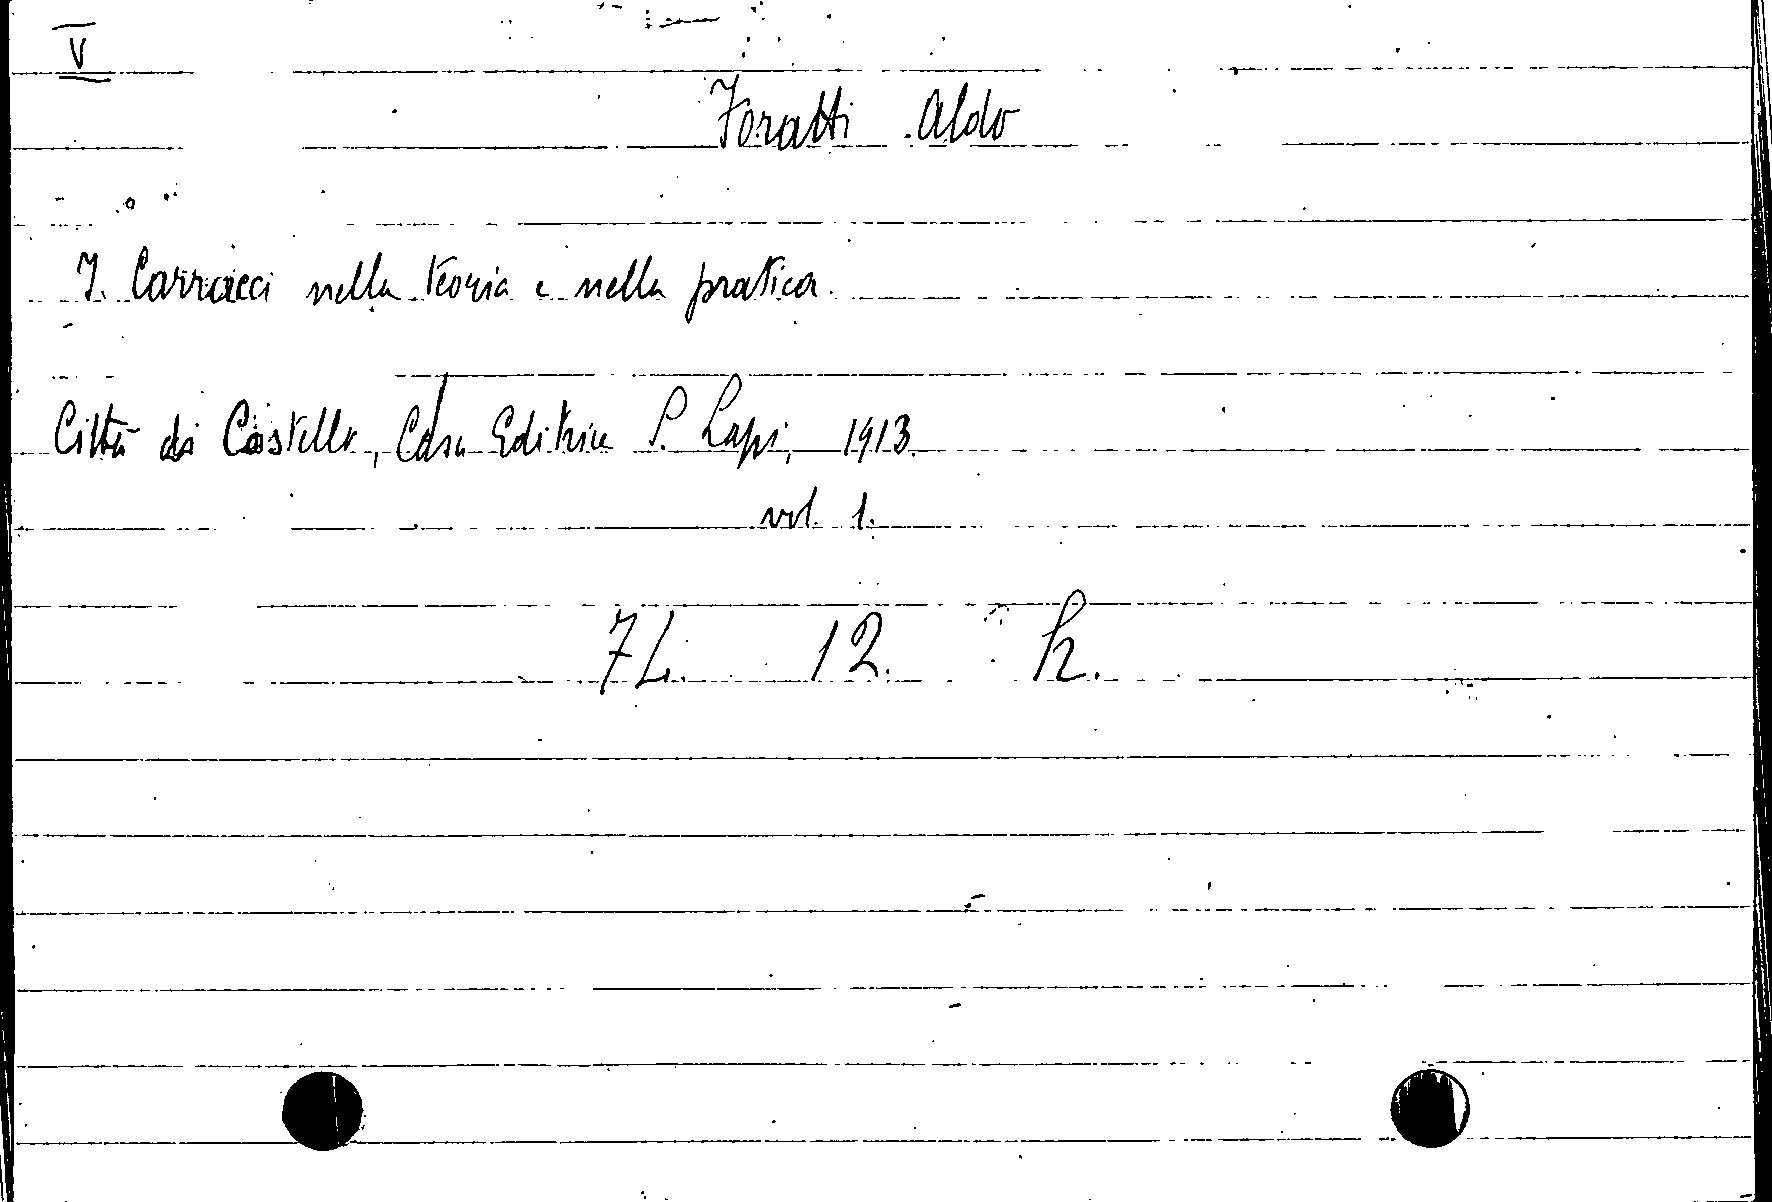 V
Foratti Aldo
I Carracci nella teoria e nella pratica.
Città di Castello, Casa Editrice S. Lapi, 1913.
vol. 1.
7L. 12. h.